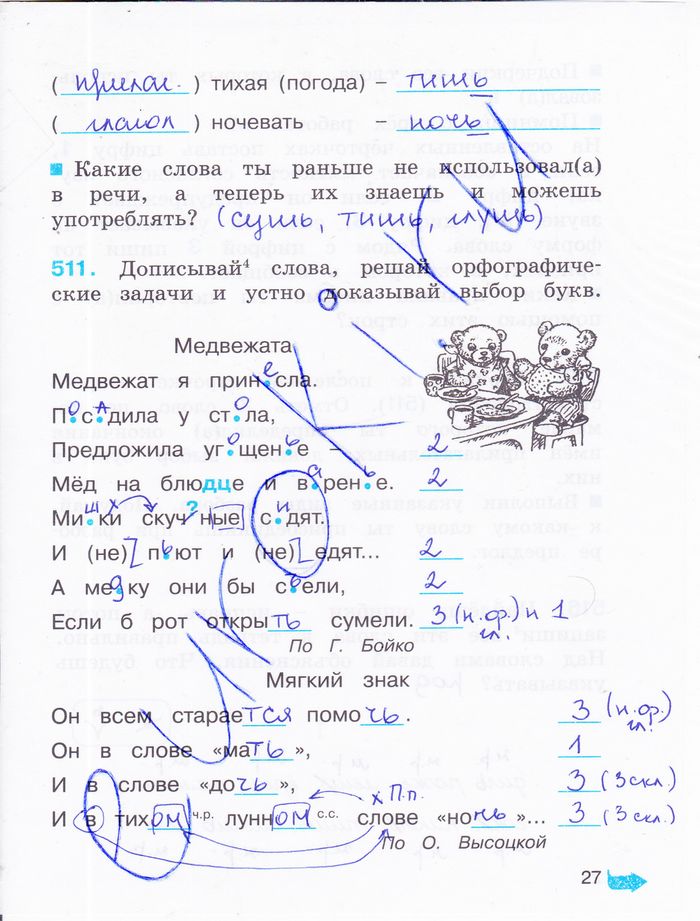 ( прилаг. ) тихая (погода) – тишь
( глагол ) ночевать – ночь
Какие слова ты раньше не использовал(а)
в речи, а теперь их знаешь и можешь
употреблять? (сушь, тишь, глушь)
511. Дописывай⁴ слова, решай орфографиче-
ские задачи и устно доказывай выбор букв.
Медвежата
Медвежат я принесла.
Посадила у стола,
Предложила угощенье 2
Мёд на блюдце и варенье. 2
Мишки скучные сидят.
И (не) пьют и (не) едят... 2
А медку они бы съели, 2
Если б рот открыть сумели. 3 (н.ф.) и 1
гл.
По Г. Бойко
Мягкий знак
Он всем старается помочь. 3 (н.ф.)
гл.
Он в слове «мать», 1
И в слове «дочь», 3 (3 скл.)
х П.п.
И в тихом ч.р. лунном с.с. слове «ночь»... 3 (3 скл.)
По О. Высоцкой
27